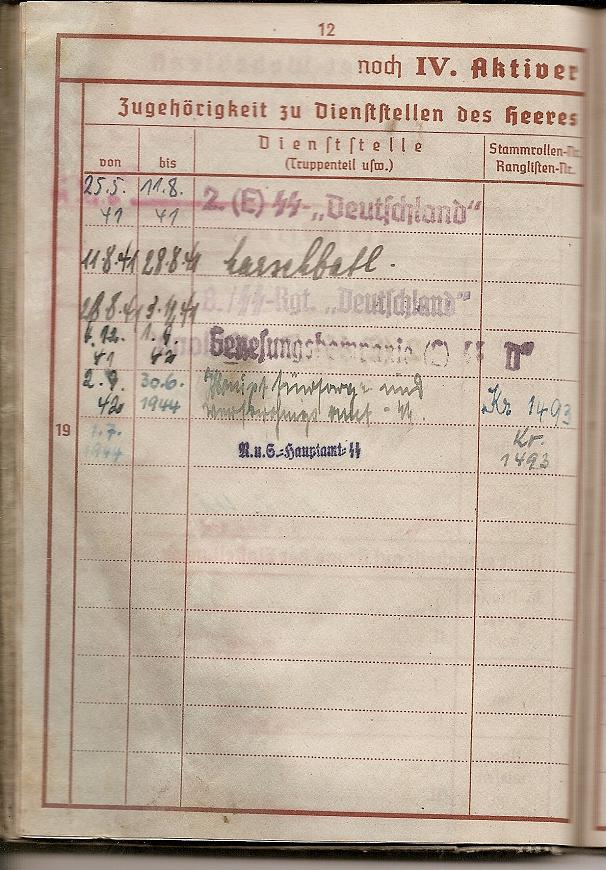 12
noch IV. Aktiver
Zugehörigkeit zu Dienststellen des Heeres
von bis Dienststelle (Truppenteil usw.) Stammrollen-Nr. Ranglisten-Nr.
25.5. 41 11.8. 41 2. (E) SS-„Deutschland“
11.8.41 28.8.41 Marschbatl.
28.8.41 8./SS-Rgt. „Deutschland“
41 42 Genesungskompanie SS „D“
42 30.6. 1944 Hauptfürsorge- und Kr 1493
19 1.7. 1944 R.u.S.-Hauptamt-SS Kr. 1493